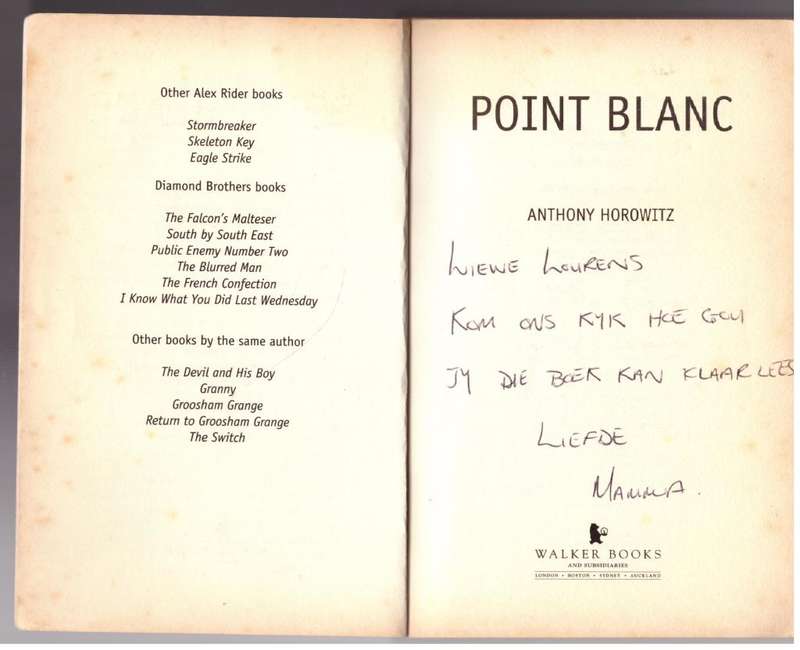 Other Alex Rider books
Stormbreaker
Skeleton Key
Eagle Strike
Diamond Brothers books
The Falcon's Malteser
South by South East
Public Enemy Number Two
The Blurred Man
The French Confection
I Know What You Did Last Wednesday
Other books by the same author
The Devil and His Boy
Granny
Groosham Grange
Return to Groosham Grange
The Switch
POINT BLANC
ANTHONY HOROWITZ
LIEWE LOURENS
KOM ONS KYK HOE GOU
JY DIE BOEK KAN KLAAR LEES
LIEFDE
MAMMA.
WALKER BOOKS
AND SUBSIDIARIES
LONDON • BOSTON • SYDNEY • AUCKLAND